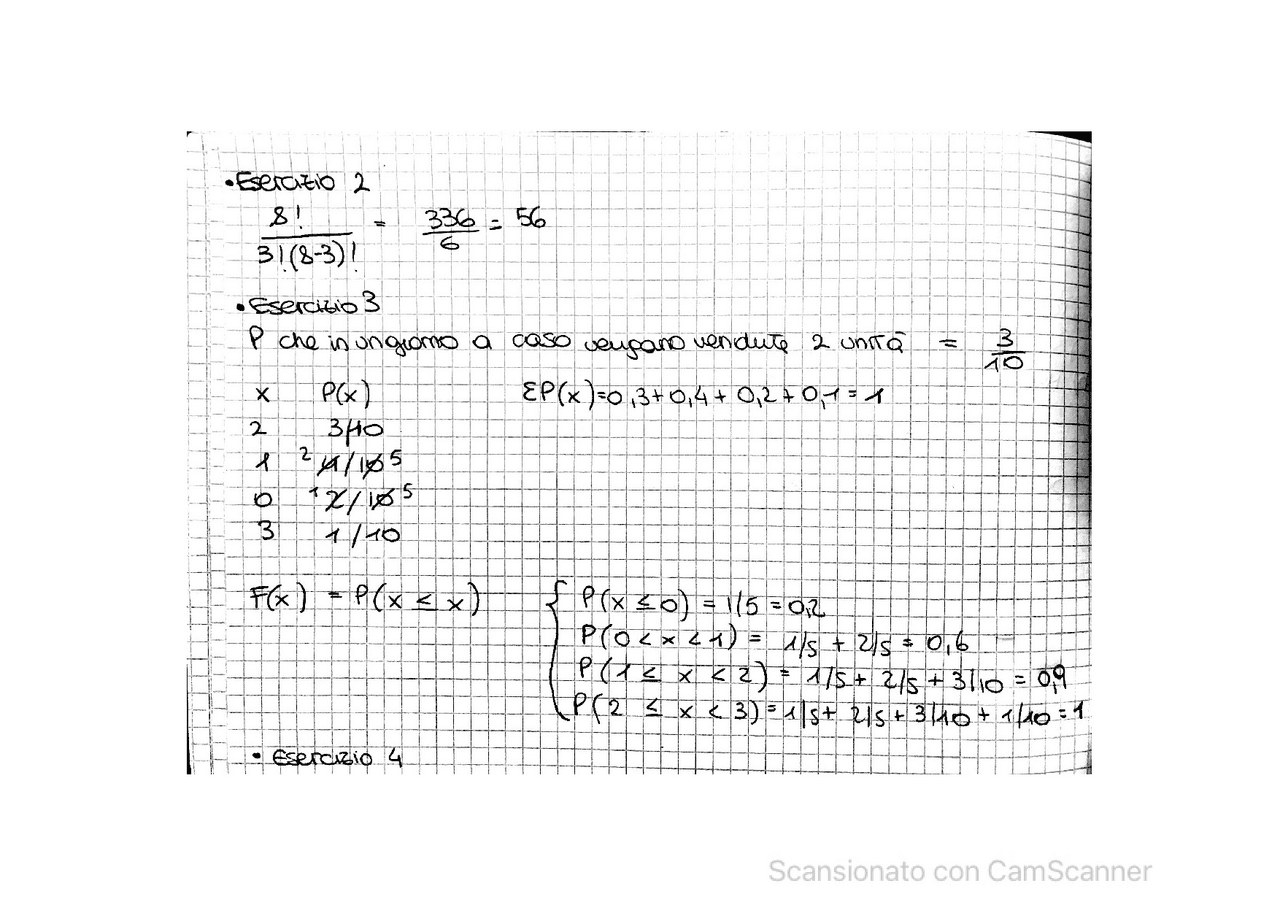 • Esercizio 2
8! / 3!(8-3)! = 336/6 = 56
• Esercizio 3
P che in un giorno a caso vengano vendute 2 unità = 3/10
x P(x) ΣP(x)=0,3+0,4+0,2+0,1=1
2 3/10
1 2 4/10 5
0 1 2/10 5
3 1/10
F(x) = P(x ≤ x) { P(x ≤ 0) = 1/5 = 0,2
P(0 < x < 1) = 1/5 + 2/5 = 0,6
P(1 ≤ x < 2) = 1/5 + 2/5 + 3/10 = 0,9
P(2 ≤ x < 3) = 1/5 + 2/5 + 3/10 + 1/10 = 1
• Esercizio 4
Scansionato con CamScanner